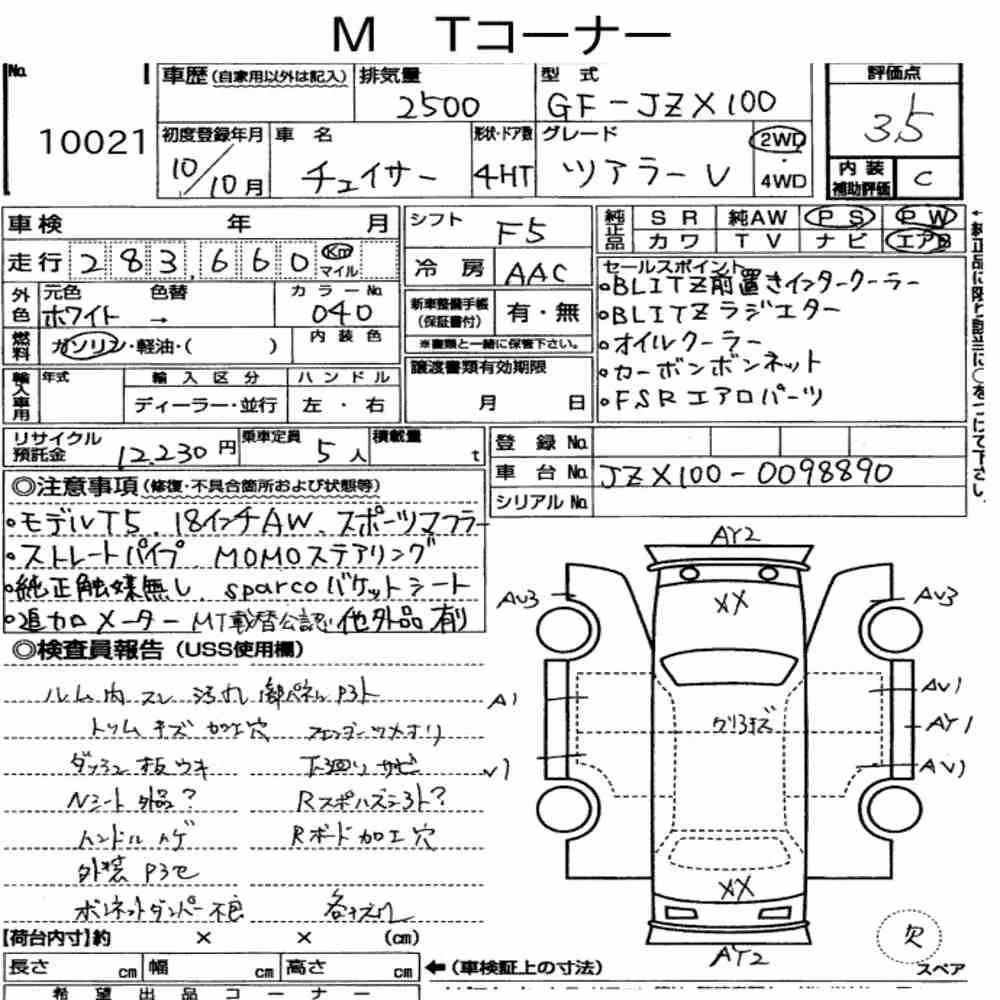 M Tコーナー
No. 車歴(自家用以外は記入) 排気量 型式 評価点
10021 2500 GF-JZX100 3.5
初度登録年月 車名 形状・ドア数 グレード 2WD
10/10月 チェイサー 4HT ツアラーV ・ 4WD 内装補助評価 C
車検 年 月 シフト F5 純正品 SR 純AW PS PW
カワ TV ナビ エアB
走行 283,660 Km マイル 冷房 AAC
外色 元色 色替 カラーNo.
ホワイト → 040
新車整備手帳(保証書付) 有・無
※書類と一緒に保管下さい。
燃料 ガソリン・軽油・( ) 内装色
譲渡書類有効期限
月 日
輸入車用 年式 輸入区分 ハンドル
ディーラー・並行 左・右
セールスポイント
・BLITZ前置きインタークーラー
・BLITZラジエター
・オイルクーラー
・カーボンボンネット
・FSRエアロパーツ
リサイクル預託金 12,230円 乗車定員 5人 積載量 t
登録No.
車台No. JZX100-0098890
シリアルNo.
◎注意事項(修復・不具合箇所および状態等)
・モデルT5、18インチAW、スポーツマフラー
・ストレートパイプ、MOMOステアリング
・純正触媒無し、sparcoバケットシート
・追加メーター MT載替公認 他外品有り
◎検査員報告(USS使用欄)
ルーム内 スレ 汚れ
トリム キズ 加工穴
ダッシュ板ウキ 下廻りサビ
Nシート外品?
ハンドルハゲ Rボード加工穴
ボンネットダンパー不良
AY2
AU3 XX AU3
A1 AU1
AY1
AU1
XX
AY2
欠
スペア
【荷台内寸】約 × × (cm)
長さ cm 幅 cm 高さ cm ←(車検証上の寸法)
希望出品コーナー